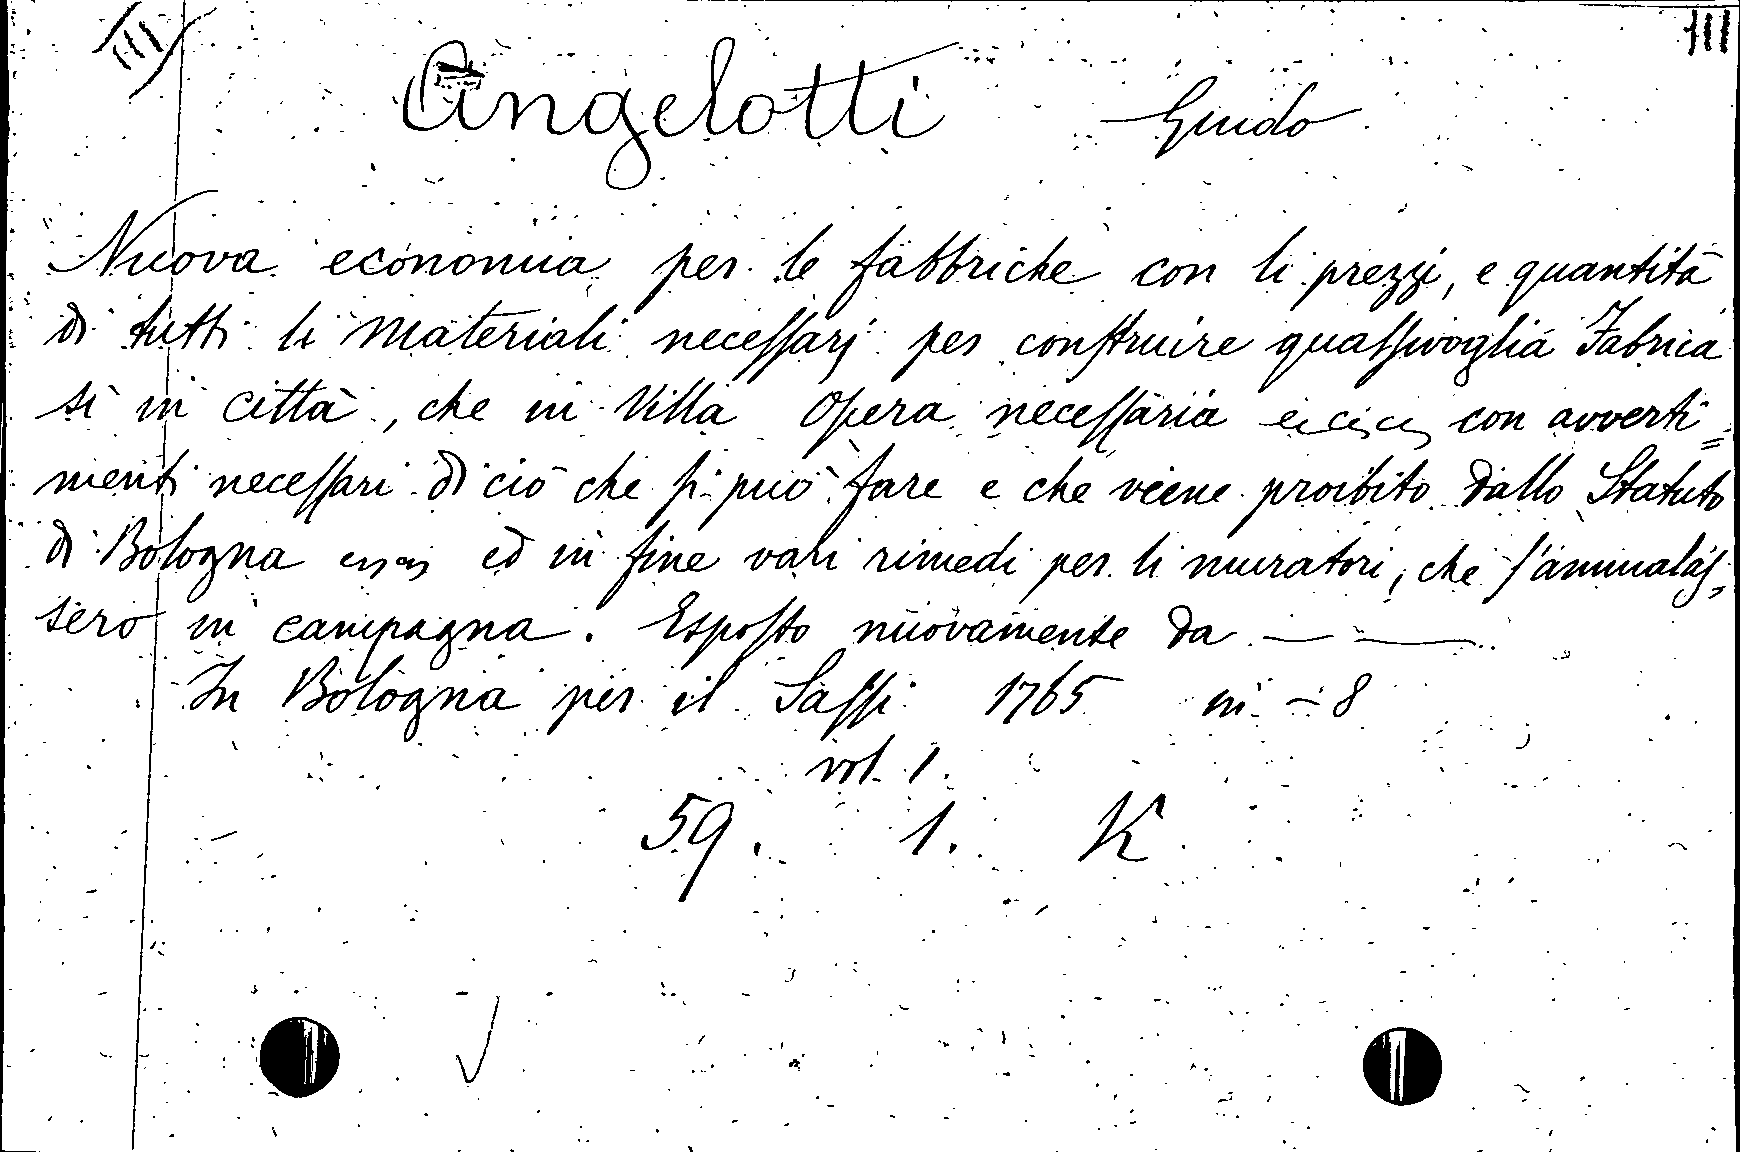 III III
Angelotti Guido
Nuova economia per le fabbriche con li prezzi, e quantità
di tutti li Materiali necessarj per construire qualsivoglia Fabrica
sì in città, che in Villa Opera necessaria con avverti=
menti necessari di ciò che si può fare e che viene proibito dallo Statuto
di Bologna ed in fine vari rimedi per li muratori, che s'ammalas=
sero in campagna. Esposto nuovamente da — —
In Bologna per il Sassi 1765 in - 8
vol. 1.
59. 1. K